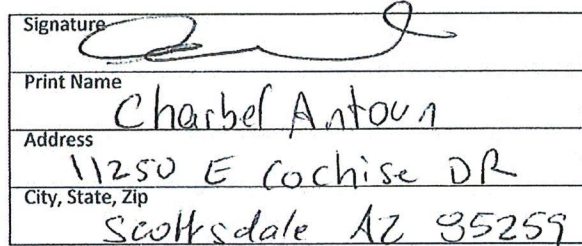 Signature
Print Name
Charbel Antoun
Address
11250 E Cochise DR
City, State, Zip
Scottsdale AZ 85259